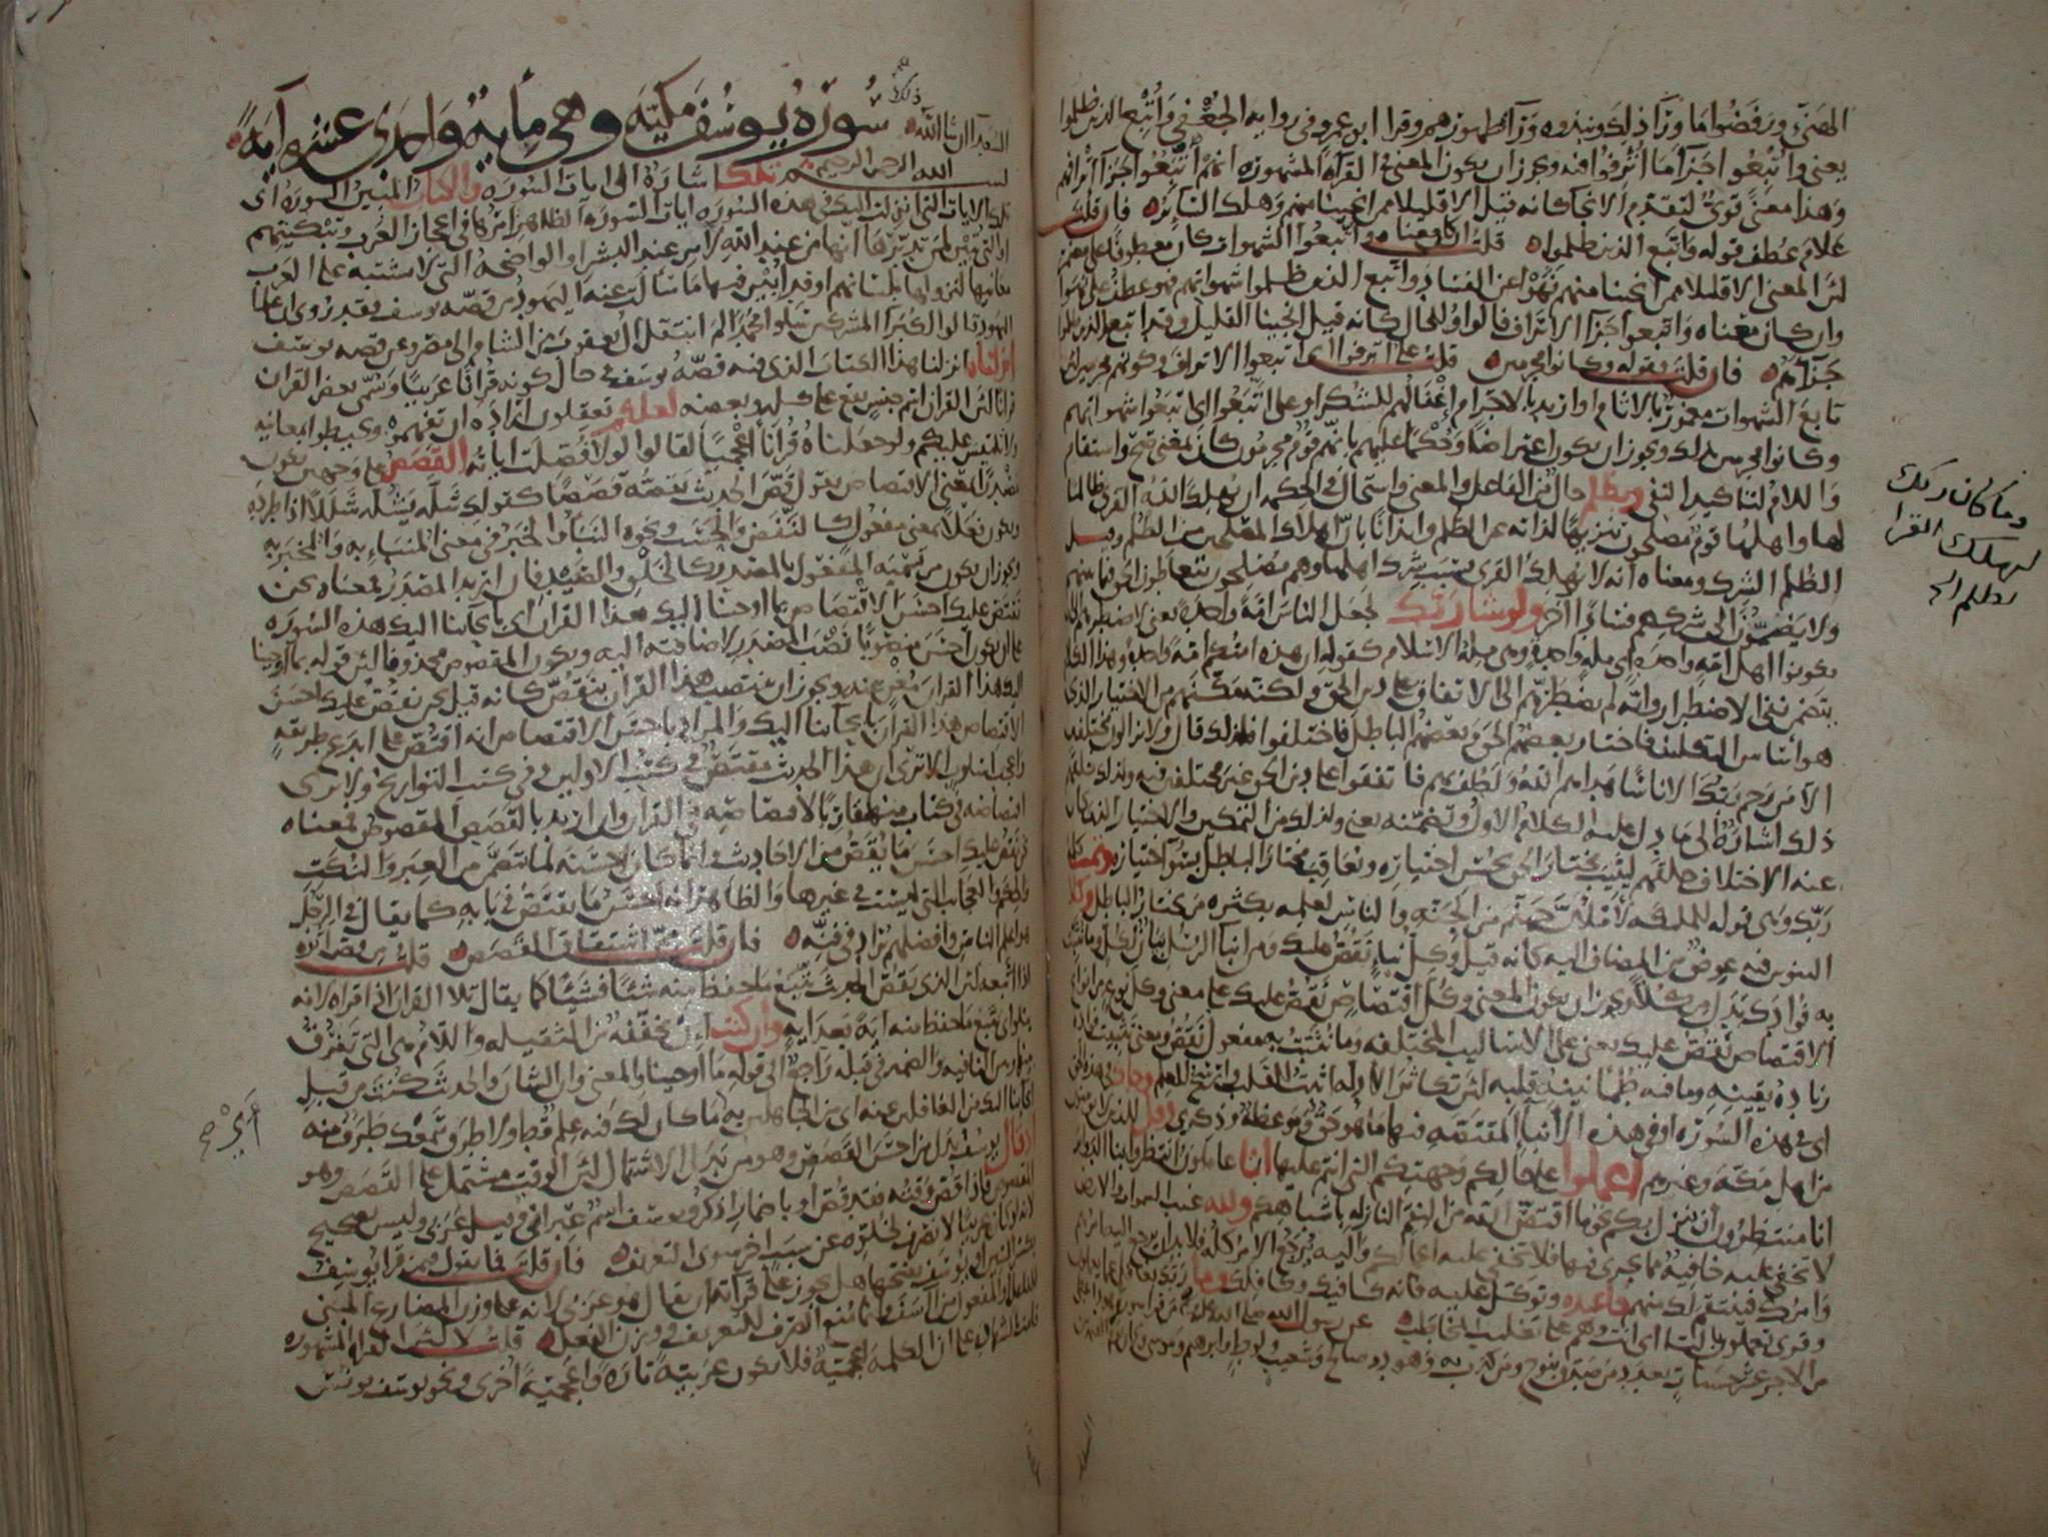 الهنيّ ورفضوا ما ورآ ذلك ونبذوه ورآ ظهورهم وقرا ابو عمرو في رواية الجعفي وأتبع الذين ظلموا
يعني واتبعوا جزآ ما اترفوا فيه ويجوز ان يكون المعنى في القرآة المشهورة انهم اتبعوا جزآ اترافهم
وهذا معنى قويّ لتقدم الانجا كانه قيل الا قليلا ممن انجينا منهم وهلك السائر فان قلت
علام عطف قوله واتبع الذين ظلموا قلت ان كان معناه واتبعوا الشهوات كان معطوفا على مضمر
لان المعنى الا قليلا ممن انجينا منهم نهوا عن الفساد واتبع الذين ظلموا شهواتهم فهو عطف على نهوا
وان كان معناه واتبعوا جزآ الاتراف فالواو للحال كانه قيل انجينا القليل وقد اتبع الذين ظلموا
جزآهم فان قلت فقوله وكانوا مجرمين قلت على اترفوا اي اتبعوا الاتراف وكونهم مجرمين لان
تابع الشهوات مغمور بالاثام او اريد بالاجرام إغفالهم للشكر او على اتّبعوا اي اتبعوا شهواتهم
وكانوا مجرمين بذلك ويجوز ان يكون اعتراضا وحكما عليهم بانهم قوم مجرمون كان بمعنى صح واستقام
واللام لتاكيد النفي وبظلم حال من الفاعل والمعنى واستحال في الحكمه ان يهلك الله القرى ظالما
لها واهلها قوم مصلحون تنزيها لذاته عن الظلم وايذانا بان اهلاك المصلحين من الظلم وقيل
الظلم الشرك ومعناه انه لا يهلك القرى بسبب شرك اهلها وهم مصلحون يتعاطون الحق فيما بينهم
ولا يضمّون الى شركهم فسادا آخر ولو شا ربك لجعل الناس امة واحدة يعني لاضطرهم الى ان
يكونوا اهل امة واحدة اي ملة واحدة وهي ملة الاسلام كقوله ان هذه امتكم امة واحدة وهذا الكلام
يتضمن نفي الاضطرار وانه لم يضطرهم الى الاتفاق على دين الحق ولكنه مكّنهم من الاختيار الذي
هو اساس التكليف فاختار بعضهم الحق وبعضهم الباطل فاختلفوا فلذلك قال ولا يزالون مختلفين
الا من رحم ربك الا ناسا هداهم الله ولطف بهم فاتفقوا على دين الحق غير مختلفين فيه ولذلك خلقهم
ذلك اشارة الى ما دل عليه الكلام الاول وتضمنه يعني ولذلك من التمكين والاختيار الذي كان
عنه الاختلاف خلقهم ليثيب مختار الحق بحسن اختياره ويعاقب مختار الباطل بسوء اختياره وتمت كلمة
ربك وهي قوله للملئكة لأملأن جهنم من الجنه والناس لعلمه بكثرة من يختار الباطل وكلا
التنوين فيه عوض من المضاف اليه كانه قيل وكل نبإ نقص عليك ومن انبآ الرسل بيان لكل وما نثبت
به فوادك بدل من كلا ويجوز ان يكون المعنى وكل اقتصاص نقص عليك على معنى وكل نوع من انواع
الاقتصاص نقص عليك يعني على الاساليب المختلفه وما نثبت به مفعول نقص ومعنى تثبيت فؤاده
زيادة يقينه وما فيه طمانينة قلبه لان تكاثر الادلة اثبت للقلب وارسخ للعلم وجاك في هذه الحق
اي في هذه السورة او في هذه الانبآ المقتصه فيها ما هو حق وموعظة وذكرى وقل للذين لا يومنون
من اهل مكة وغيرهم اعملوا على حالكم وجهتكم التي انتم عليها انا عاملون وانتظروا بنا الدوائر
انا منتظرون ان ينزل بكم نحو ما اقتص الله من النقم النازله باشباهكم ولله غيب السموات والارض
لا تخفى عليه خافية مما يجري فيها فلا تخفى عليه اعمالكم واليه يرجع الامر كله فلا بد ان يرجع اليه امرهم
وامرك فينتقم لك منهم فاعبده وتوكل عليه فانه كافيك وكافلك وما ربك بغافل عما يعملون
وقرى تعملون بالتا اي انت وهم على تغليب المخاطب عن رسول الله صلى الله عليه من قرا سورة هود اعطي
من الاجر عشر حسنات بعدد من صدق بنوح ومن كذب به وهود وصالح وشعيب ولوط وابراهيم وموسى وكان يوم القيمة من
وما كان ربك
ليهلك القرا
بظلم الخ
السعدآ ان شا الله
ذلك
سورة يوسف مكيّة وهي مأية وإحدى عشرة آية
بسم الله الرحمن الرحيم تلك اشارة الى ايات السورة والكتاب المبين السورة اي
تلك الايات التي انزلت اليك في هذه السورة ايات السورة الظاهر امرها في اعجاز العرب وتبكيتهم
او التي تبيّن لمن تدبّرها انها من عند الله لا من عند البشر او الواضحة التي لا تشتبه على العرب
معانيها لنزولها بلسانهم او قد ابين فيها ما سالت عنه اليهود من قصة يوسف فقد روي ان علمآ
اليهود قالوا لكبرآ المشركين سلوا محمدا لم انتقل آل يعقوب من الشام الى مصر وعن قصه يوسف
انزلناه انزلنا هذا الكتاب الذي فيه قصة يوسف في حال كونه قرآنا عربيا وسمى بعض القران
قرآنا لان القران اسم جنس يقع على كله وبعضه لعلكم تعقلون ارادة ان تفهموه وتحيطوا بمعانيه
ولا يلتبس عليكم ولو جعلناه قرآنا أعجميا لقالوا لولا فصلت آياته القصص على وجهين يكون
مصدرا بمعنى الاقتصاص يقول قصّ الحديث يقصه قصصا كقولك شلّه يشلّه شللا اذا طرده
ويكون فعلا بمعنى مفعول كالنفض والحسب ونحوه النبأ والخبر في معنى المنبّاء به والمخبر به
ويجوز ان يكون من تسميه المفعول بالمصدر كالخلق والصيد فان اريد المصدر فمعناه نحن
نقص عليك احسن الاقتصاص بما اوحينا اليك هذا القران اي بايحآئنا اليك هذه السورة
على ان يكون احسن منصوبا نصب المصدر لاضافته اليه ويكون المقصوص محذوفا لان قوله بما اوحينا
اليك هذا القران مغن عنه ويجوز ان ينتصب هذا القران بنقص كانه قيل نحن نقص عليك احسن
الاقتصاص هذا القران بايحآئنا اليك والمراد باحسن الاقتصاص انه اقتص على ابدع طريقة
واعجب اسلوب الا ترى ان هذا الحديث مقتص في كتب الاولين وفي كتب التواريخ ولا ترى
اقتصاصه في كتاب منها مقاربا لاقتصاصه في القران وان اريد بالقصص المقصوص فمعناه
نحن نقص عليك احسن ما يقص من الاحاديث وانما كان احسنه لما تضمن من العبر والنكت
والحكم والعجايب التي ليست في غيرها والظاهر انه احسن ما يقتص في بابه كما يقال في الرجل
هو اعلم الناس وافضلهم يراد في فنه فان قلت مم اشتقاق القصص قلت من قص اثره
اذا اتبعه لان الذي يقص الحديث يتبع ما حفظ منه شيئا فشيئا كما يقال تلا القران اذا قراه لانه
يتلو اي يتبع ما حفظ منه اية بعد اية وان كنت إن مخففه من الثقيله واللام هي التي تفرق
بينها وبين النافيه والضمير في قبله راجع الى قوله ما اوحينا والمعنى وان الشان والحديث كنت من قبل
ايحآئنا اليك من الغافلين عنه اي من الجاهلين به ما كان لك فيه علم قط ولا طرق سمعك طرف منه
اذ قال يوسف بدل من احسن القصص وهو من بدل الاشتمال لان الوقت مشتمل على القصص وهو
المقصوص فاذا قص وقته فقد قص او باضمار اذكر ويوسف اسم عبراني وقيل عربي وليس بصحيح
لانه لو كان عربيا لانصرف لخلوه عن سبب اخر سوى التعريف فان قلت فما تقول فيمن قرا يوسف
بكسر السين او يوسف بفتحها هل يجوز على قرآته ان يقال هو عربي لانه على وزن المضارع المبني
للفاعل او المفعول من آسف وانما منع الصرف للتعريف ووزن الفعل قلت لا لان القرآة المشهورة
قامت بالشهادة على ان الكلمة اعجمية فلا تكون عربية تارة واعجمية اخرى ونحو يوسف يونس